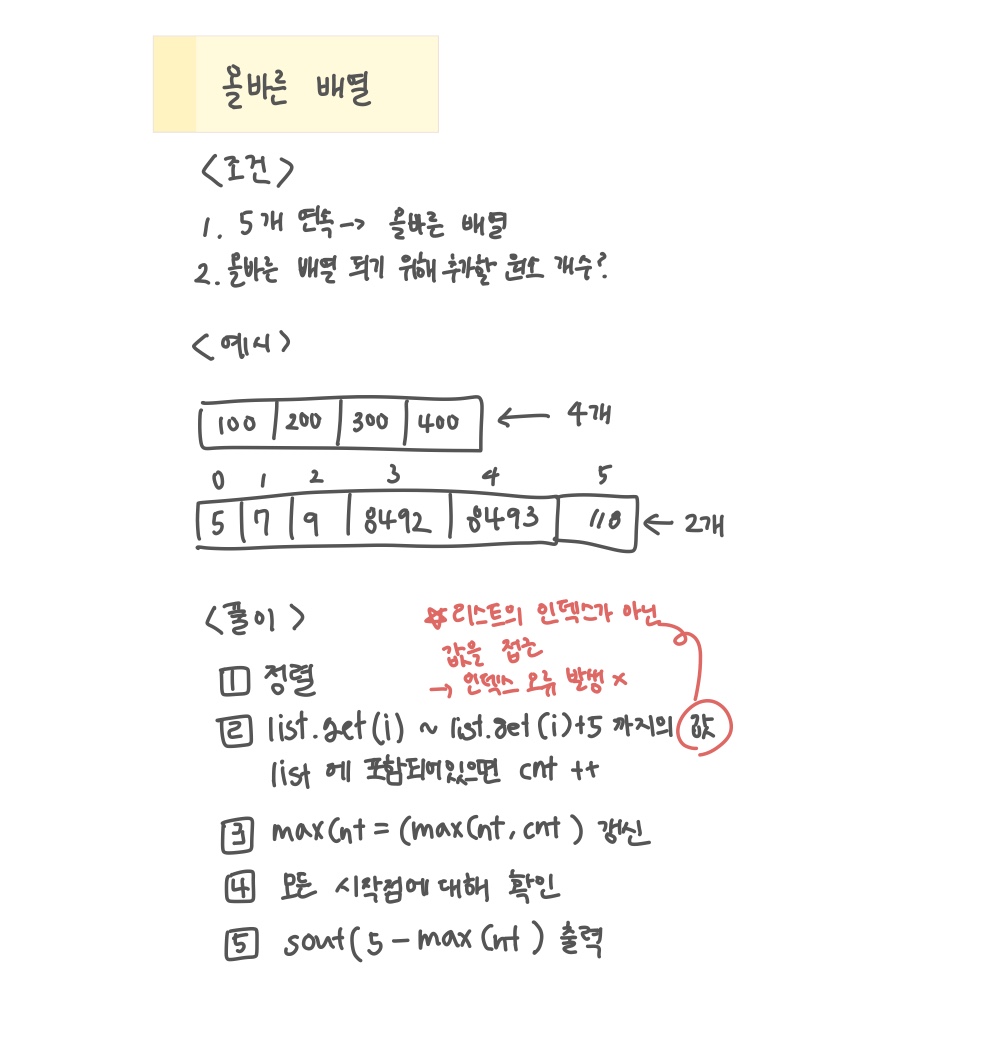 올바른 배열
<조건>
1. 5개 연속 → 올바른 배열
2. 올바른 배열 되기 위해 추가할 원소 개수?
<예시>
100 200 300 400 ← 4개
0 1 2 3 4 5
5 7 9 8492 8493 118 ← 2개
<풀이>
☆ 리스트의 인덱스가 아닌
값을 접근
→ 인덱스 오류 발생 x
1 정렬
2 list.get(i) ~ list.get(i)+5 까지의 값
list 에 포함되어있으면 cnt ++
3 maxCnt = (maxCnt, cnt) 갱신
4 모든 시작점에 대해 확인
5 sout(5 - maxCnt) 출력